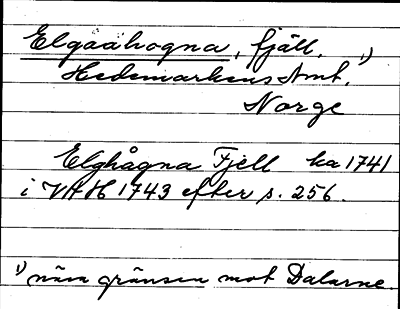 Elgaahogna, fjäll, 1)
Hedemarkens Amt.
Norge
Elghågna Fjell ka 1741
i VAH 1743 efter s. 256.
1) nära gränsen mot Dalarne.